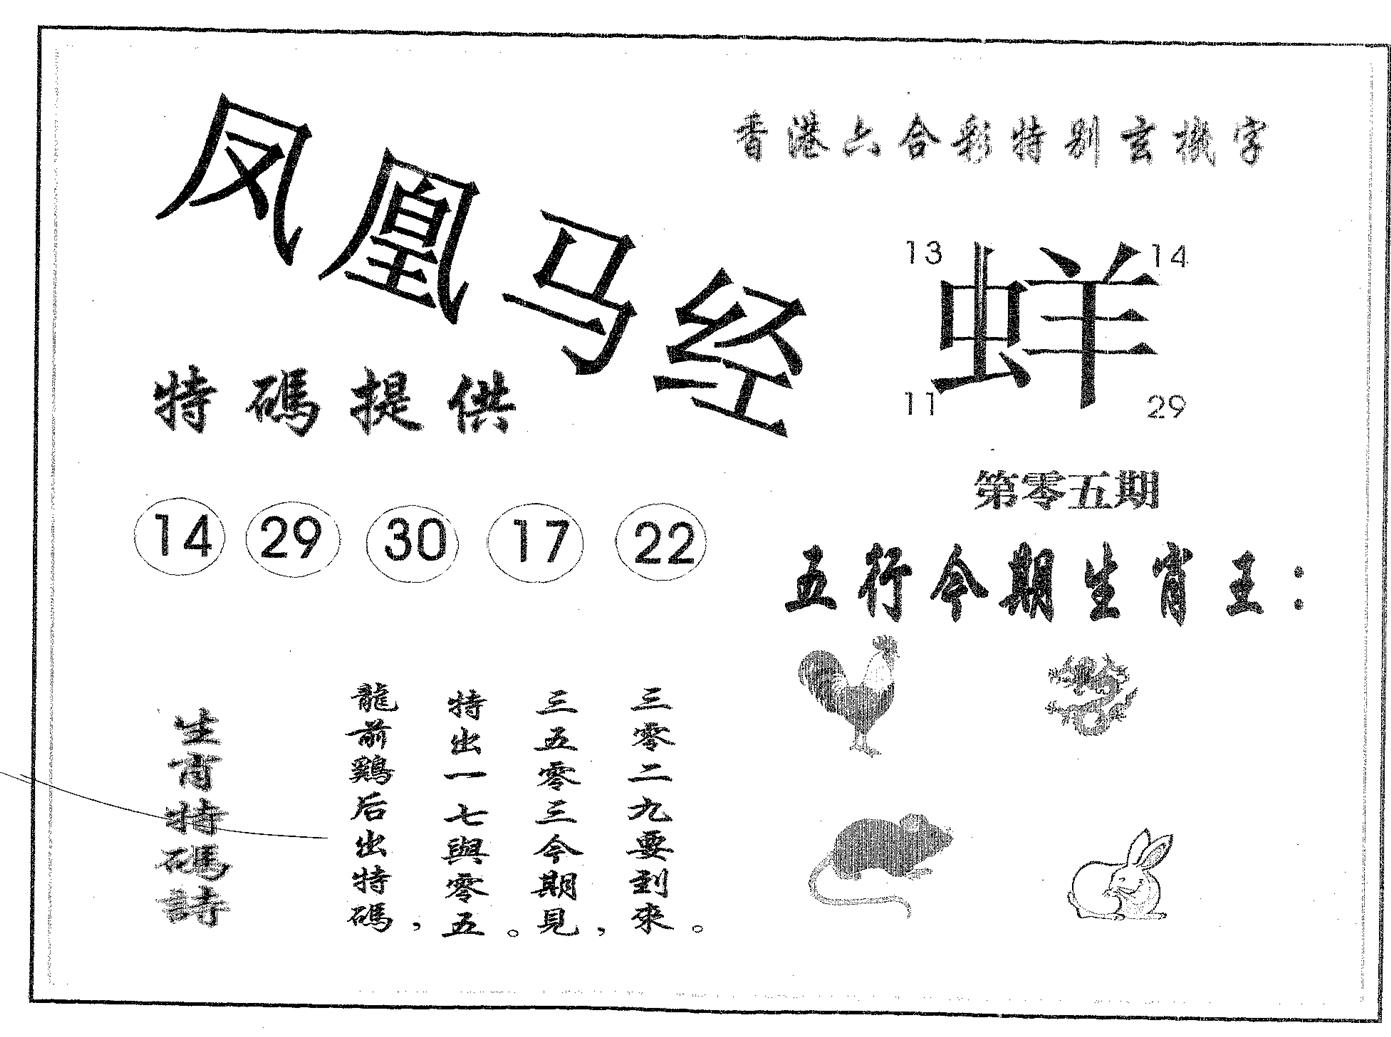 凤凰马经
香港六合彩特别玄機字
13
14
蛘
11
29
特碼提供
第零五期
14 29 30 17 22
五行今期生肖王：
生肖特碼詩
龍前鷄后出特碼，
特出一七與零五。
三五零三今期見，
三零二九要到來。